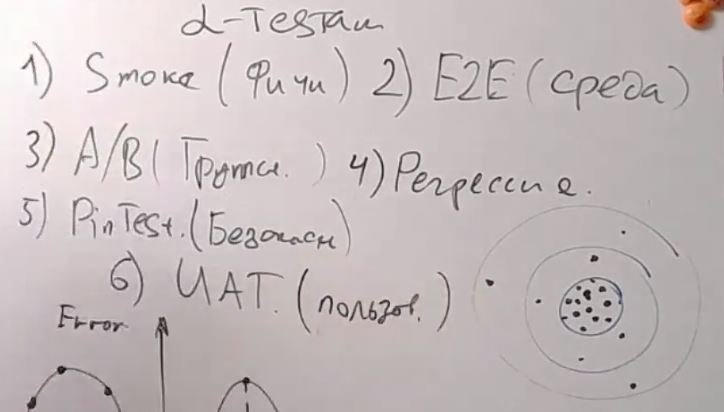 α-Тестам
1) Smoke (Фичи) 2) E2E (среда)
3) A/B ( ) 4) Регрессия.
5) PinTest. (Безопасн)
6) UAT. (пользов.)
Error